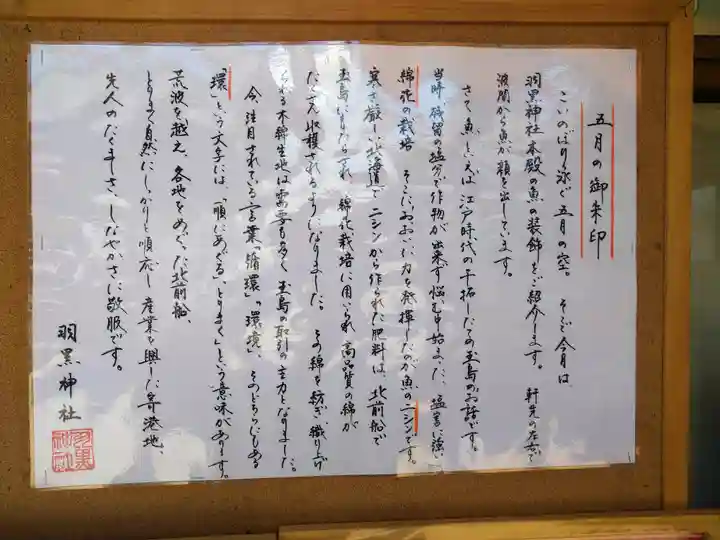 五月の御朱印
こいのぼり泳ぐ五月の空。 そこで今月は、
羽黒神社本殿の魚の装飾をご紹介します。 軒先の左右で
波間から魚が顔を出しています。
さて、魚といえば江戸時代の干拓したての玉島のお話です。
当時、残留の塩分で作物が出来ず悩む中始まった、塩害に強い
綿花の栽培 そこにおおいに力を発揮したのが魚のニシンです。
寒さ厳しい北海道でニシンから作られた肥料は、北前船で
玉島にもたらされ、綿花栽培に用いられ、高品質の綿が
たくさん収穫されるようになりました。 その綿を紡ぎ、織り上げ
られる木綿生地は需要も多く、玉島の取引の主力となりました。
今、注目されている言葉「循環」「環境」、そのどちらにもある
「環」という文字には、「順にめぐる、とりまく」という意味があります。
荒波を越え、各地をめぐった北前船、
とりまく自然にしっかりと順応し産業を興した寄港地、
先人のたくましさ、しなやかさに敬服です。
羽黒神社
羽黒神社